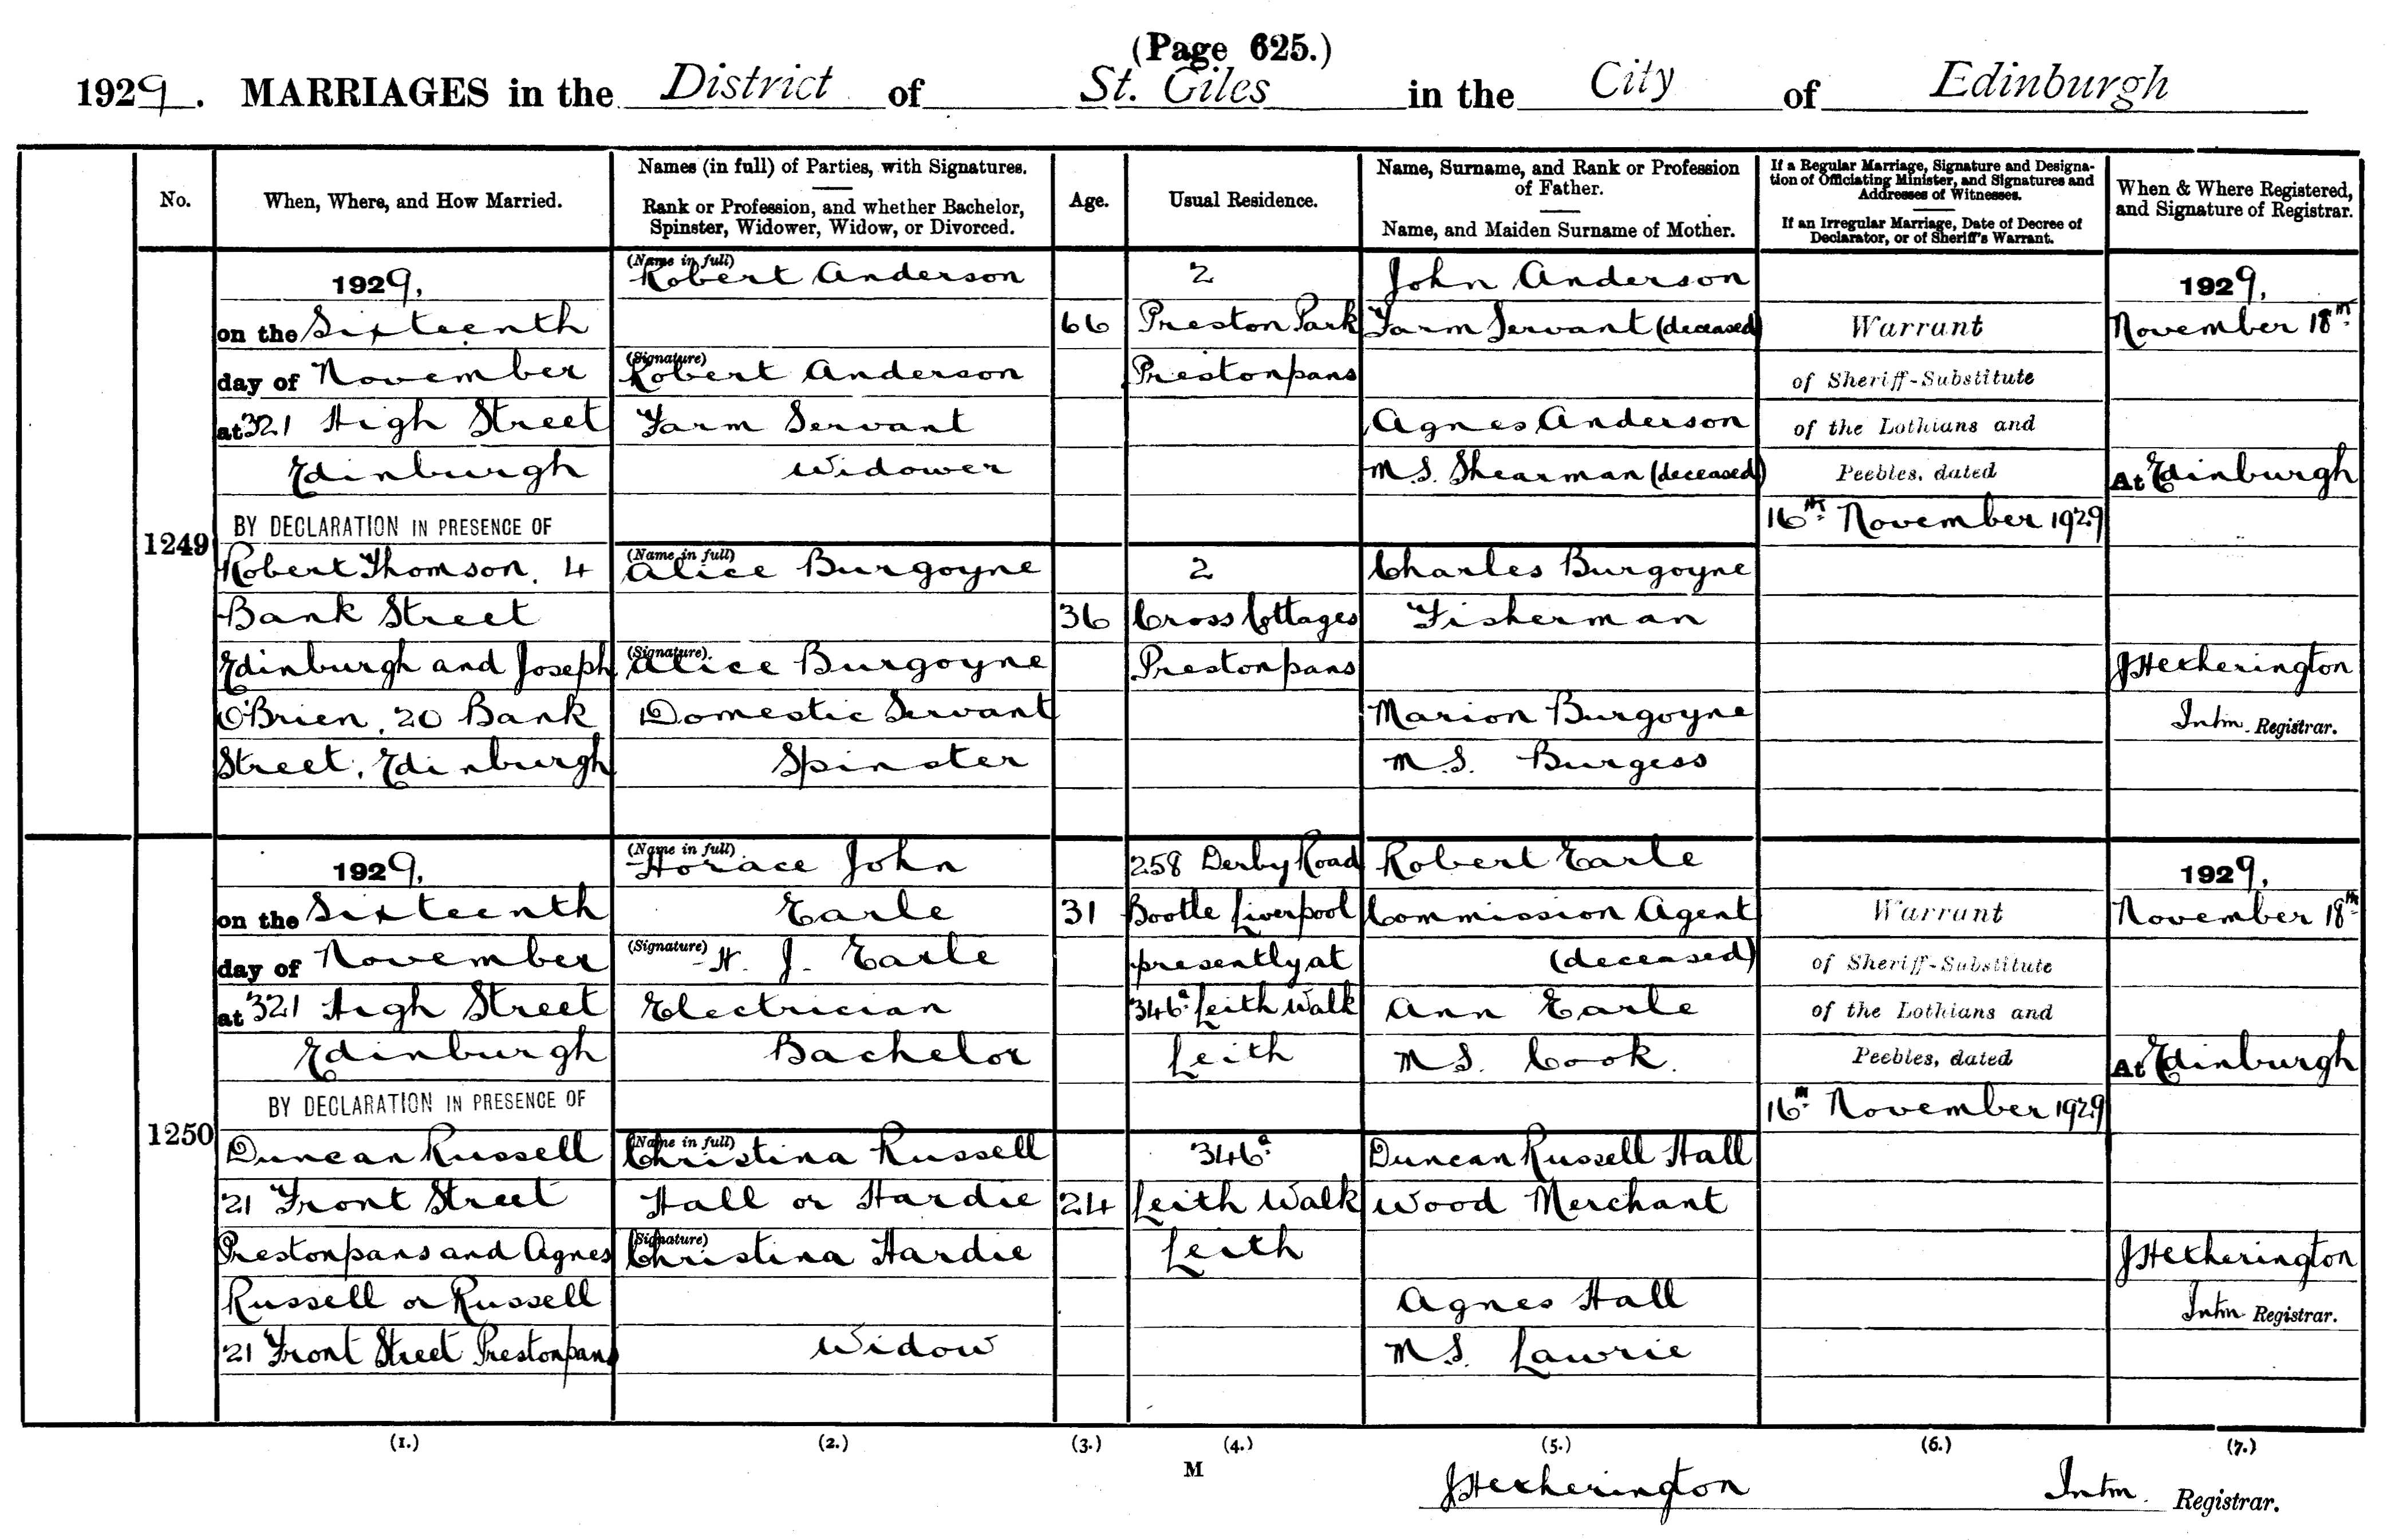 (Page 625.)
1929. MARRIAGES in the District of St. Giles in the City of Edinburgh
No.
When, Where, and How Married.
Names (in full) of Parties, with Signatures.
Rank or Profession, and whether Bachelor,
Spinster, Widower, Widow, or Divorced.
Age.
Usual Residence.
Name, Surname, and Rank or Profession
of Father.
Name, and Maiden Surname of Mother.
If a Regular Marriage, Signature and Designa-
tion of Officiating Minister, and Signatures and
Addresses of Witnesses.
If an Irregular Marriage, Date of Decree of
Declarator, or of Sheriff's Warrant.
When & Where Registered,
and Signature of Registrar.
1249
1929,
on the Sixteenth
day of November
at 321 High Street
Edinburgh
BY DECLARATION IN PRESENCE OF
Robert Thomson, 4
Bank Street
Edinburgh and Joseph
O'Brien, 20 Bank
Street, Edinburgh
(Name in full)
Robert Anderson
(Signature)
Robert Anderson
Farm Servant
Widower
66
2
Preston Park
Prestonpans
John Anderson
Farm Servant (deceased)
Agnes Anderson
M.S. Shearman (deceased)
(Name in full)
Alice Burgoyne
(Signature)
Alice Burgoyne
Domestic Servant
Spinster
36
2
Cross Cottages
Prestonpans
Charles Burgoyne
Fisherman
Marion Burgoyne
M.S. Burgess
Warrant
of Sheriff-Substitute
of the Lothians and
Peebles, dated
16th November 1929
1929,
November 18th
At Edinburgh
J Hetherington
Intm. Registrar.
1250
1929,
on the Sixteenth
day of November
at 321 High Street
Edinburgh
BY DECLARATION IN PRESENCE OF
Duncan Russell
21 Front Street
Prestonpans and Agnes
Russell or Russell
21 Front Street Prestonpans
(Name in full)
Horace John
Earle
(Signature)
H. J. Earle
Electrician
Bachelor
31
258 Derby Road
Bootle Liverpool
presently at
346a Leith Walk
Leith
Robert Earle
Commission Agent
(deceased)
Ann Earle
M.S. Cook.
(Name in full)
Christina Russell
Hall or Hardie
(Signature)
Christina Hardie
Widow
24
346a
Leith Walk
Leith
Duncan Russell Hall
Wood Merchant
Agnes Hall
M.S. Lawrie
Warrant
of Sheriff-Substitute
of the Lothians and
Peebles, dated
16th November 1929
1929,
November 18th
At Edinburgh
J Hetherington
Intm Registrar.
(1.) (2.) (3.) (4.) (5.) (6.) (7.)
M
J Hetherington Intm. Registrar.